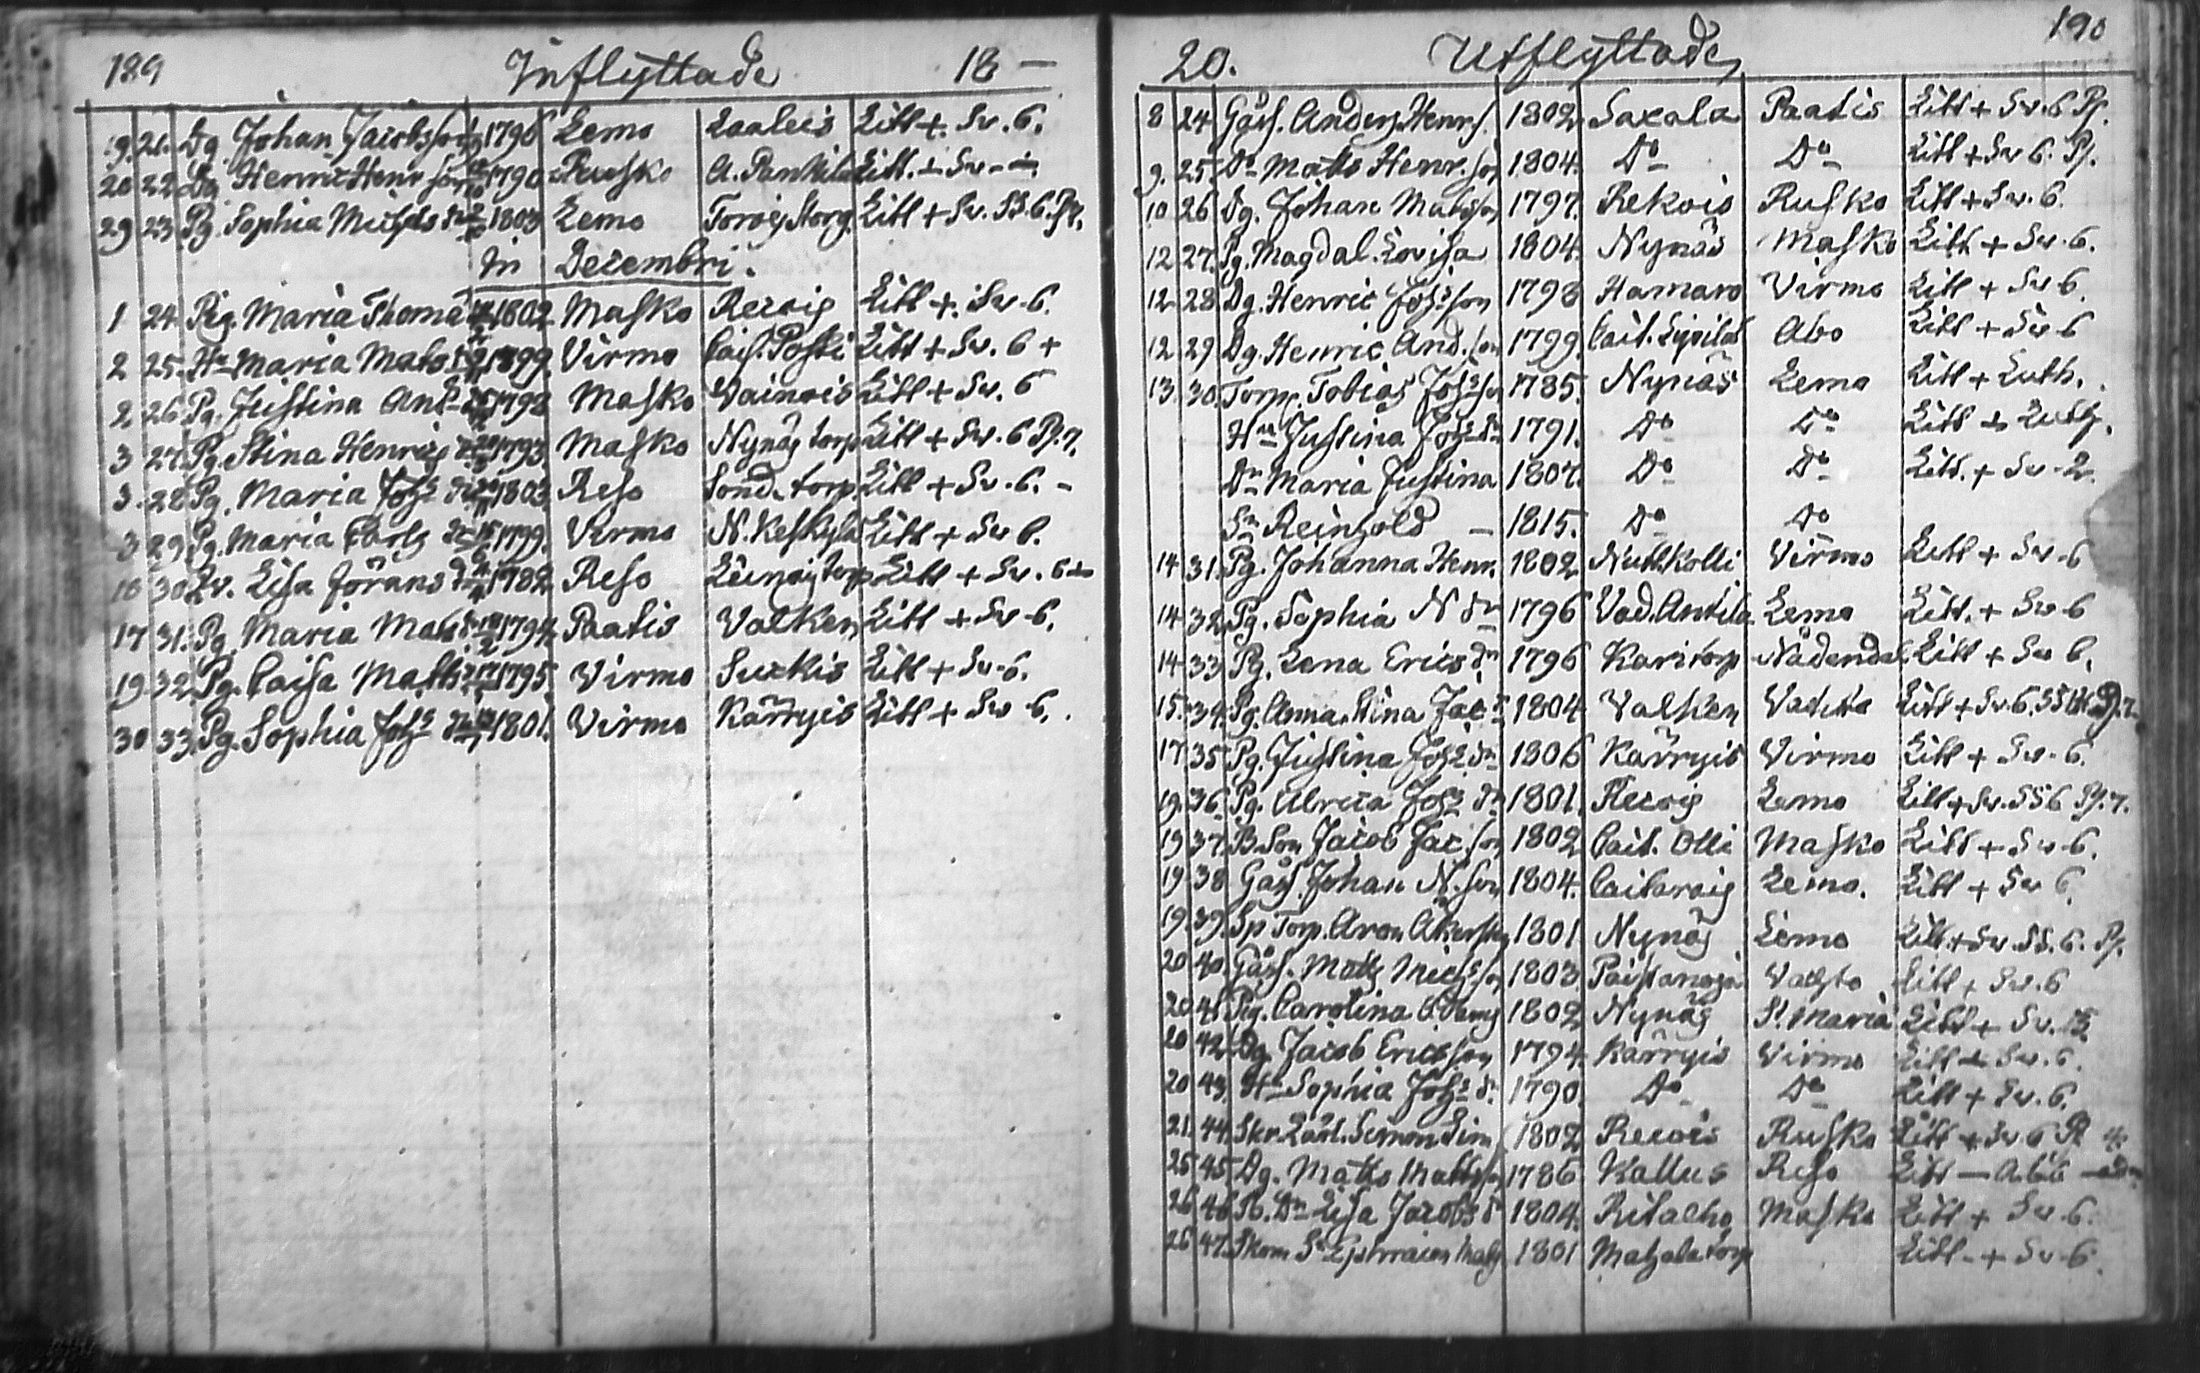 189 Inflyttade 18 —
19. 21. Dg. Johan Jacobsson 1796 Lemo Laaleis Litt +. Sv. 6.
20 22 Dg Henric Henr son 1790 Rusko A. Pankila Litt. + Sv - +
29 23 Pg Sophia Michels dr 1803 Lemo Torvig Storg. Litt + Sv. SS. 6. Ps.
In Decembri.
1 24 Pig. Maria Thomæ 1802 Masko Recois Litt +. Sv. 6.
2 25. Hu Maria Mats dr 1799 Virmo Caif. Posti Litt + Sv. 6 +
2 26 Pg. Justina And. 1798 Masko Wainois Litt + Sv. 6
3 27. Pg. Stina Henrics 1793 Masko Nynäs torp Litt + Sv. 6 Ps. 7.
3. 28 Pg. Maria Johs dr 1803 Reso Sond. torp Litt + Sv. 6. -
3 29 Pg. Maria Carls dr 1799. Virmo N. Keskyla Litt + Sv 6.
16 30 Lv. Lisa Jörans dr 1782 Reso Leinais torp Litt + Sv. 6 +
17 31. Pg. Maria Mats dr 1794 Paatis Valken Litt + Sv 6.
19 32 Pg. Caisa Matts 1795 Virmo Surkis Litt + Sv. 6.
30 33. Pg. Sophia Johs dr 1801. Virmo Karryis Litt + Sv 6.
20. Utflyttade, 190
8 24 Gåss. Anders Henrs. 1802 Saxala Paatis Litt + Sv. 6 Ps.
9. 25 Do Matts Henr. son 1804. Do Do Litt + Sv 6. Ps.
10 26 Dg. Johan Matsson 1797. Rekois Rusko Litt + Sv. 6.
12 27. Pg. Magdal. Lovisa 1804. Nynäs Masko Litt + Sv. 6.
12 28 Dg. Henric Johsson 1798 Hamaro Virmo Litt + Sv 6.
12 29 Dg. Henric And. son 1799. Cait. Åbo Litt + Sv 6
13. 30. Torp. Tobias Johs son 1785. Nynäs Lemo Litt + Luth.
Hu Justina Johs dr 1791. Do Do Litt + Luth.
Dr Maria Justina 1807. Do Do Litt. + Sv - 2.
Sn Reinhold — 1815. Do Do
14 31. Pg. Johanna Henr. 1802 Nuttkolli Virmo Litt + Sv - 6
14 32 Pg. Sophia N dr 1796 Vad. Antila Lemo Litt. + Sv 6
14 33 Pg. Lena Erics dr 1796 Karitorp Nådendal Litt + Sv 6.
15. 34. Pg. Anna Stina Jac. 1804 Valken Vahto Litt + Sv. 6. SS Ps. 7.
17 35 Pg. Justina Johs dr 1806 Karryis Virmo Litt + Sv. 6.
19. 36 Pg. Ulrica Johs dr 1801. Recois Lemo Litt + Sv. SS 6 Ps. 7.
19 37. B. Son Jacob Jac. son 1802 Cait. Olli Masko Litt + Sv 6.
19 38 Gåss. Johan N. son 1804. Caitarais Lemo. Litt + Sv 6.
19. 39. Sp Torp. Aron Åkerstén 1801 Nynäs Lemo Litt. + Sv. SS. 6. Ps.
20 40. Gåss. Matts Michsson 1803 Paistanoja Vahto Litt + Sv. 6
20 41. Pig. Carolina 1802 Nynäs St. Maria Litt + Sv.
20 42. Dg. Jacob Ericsson 1794. Karryis Virmo Litt + Sv. 6.
20 43. Hu Sophia Johs dr 1790. Do Do Litt + Sv. 6.
21. 44. Skr. Lärl. Simon Sim. 1802 Recois Rusko Litt + Sv 6 Ps
25 45 Dg. Matts Mattsson 1786 Kallus Reso Litt — Abc —
26 46 Dr Lisa Jacobs dr 1804. Ritalho Masko Litt + Sv. 6.
26 47. Skom. Sn Ephraim Mats. 1801 Matzala torp Litt. + Sv. 6.